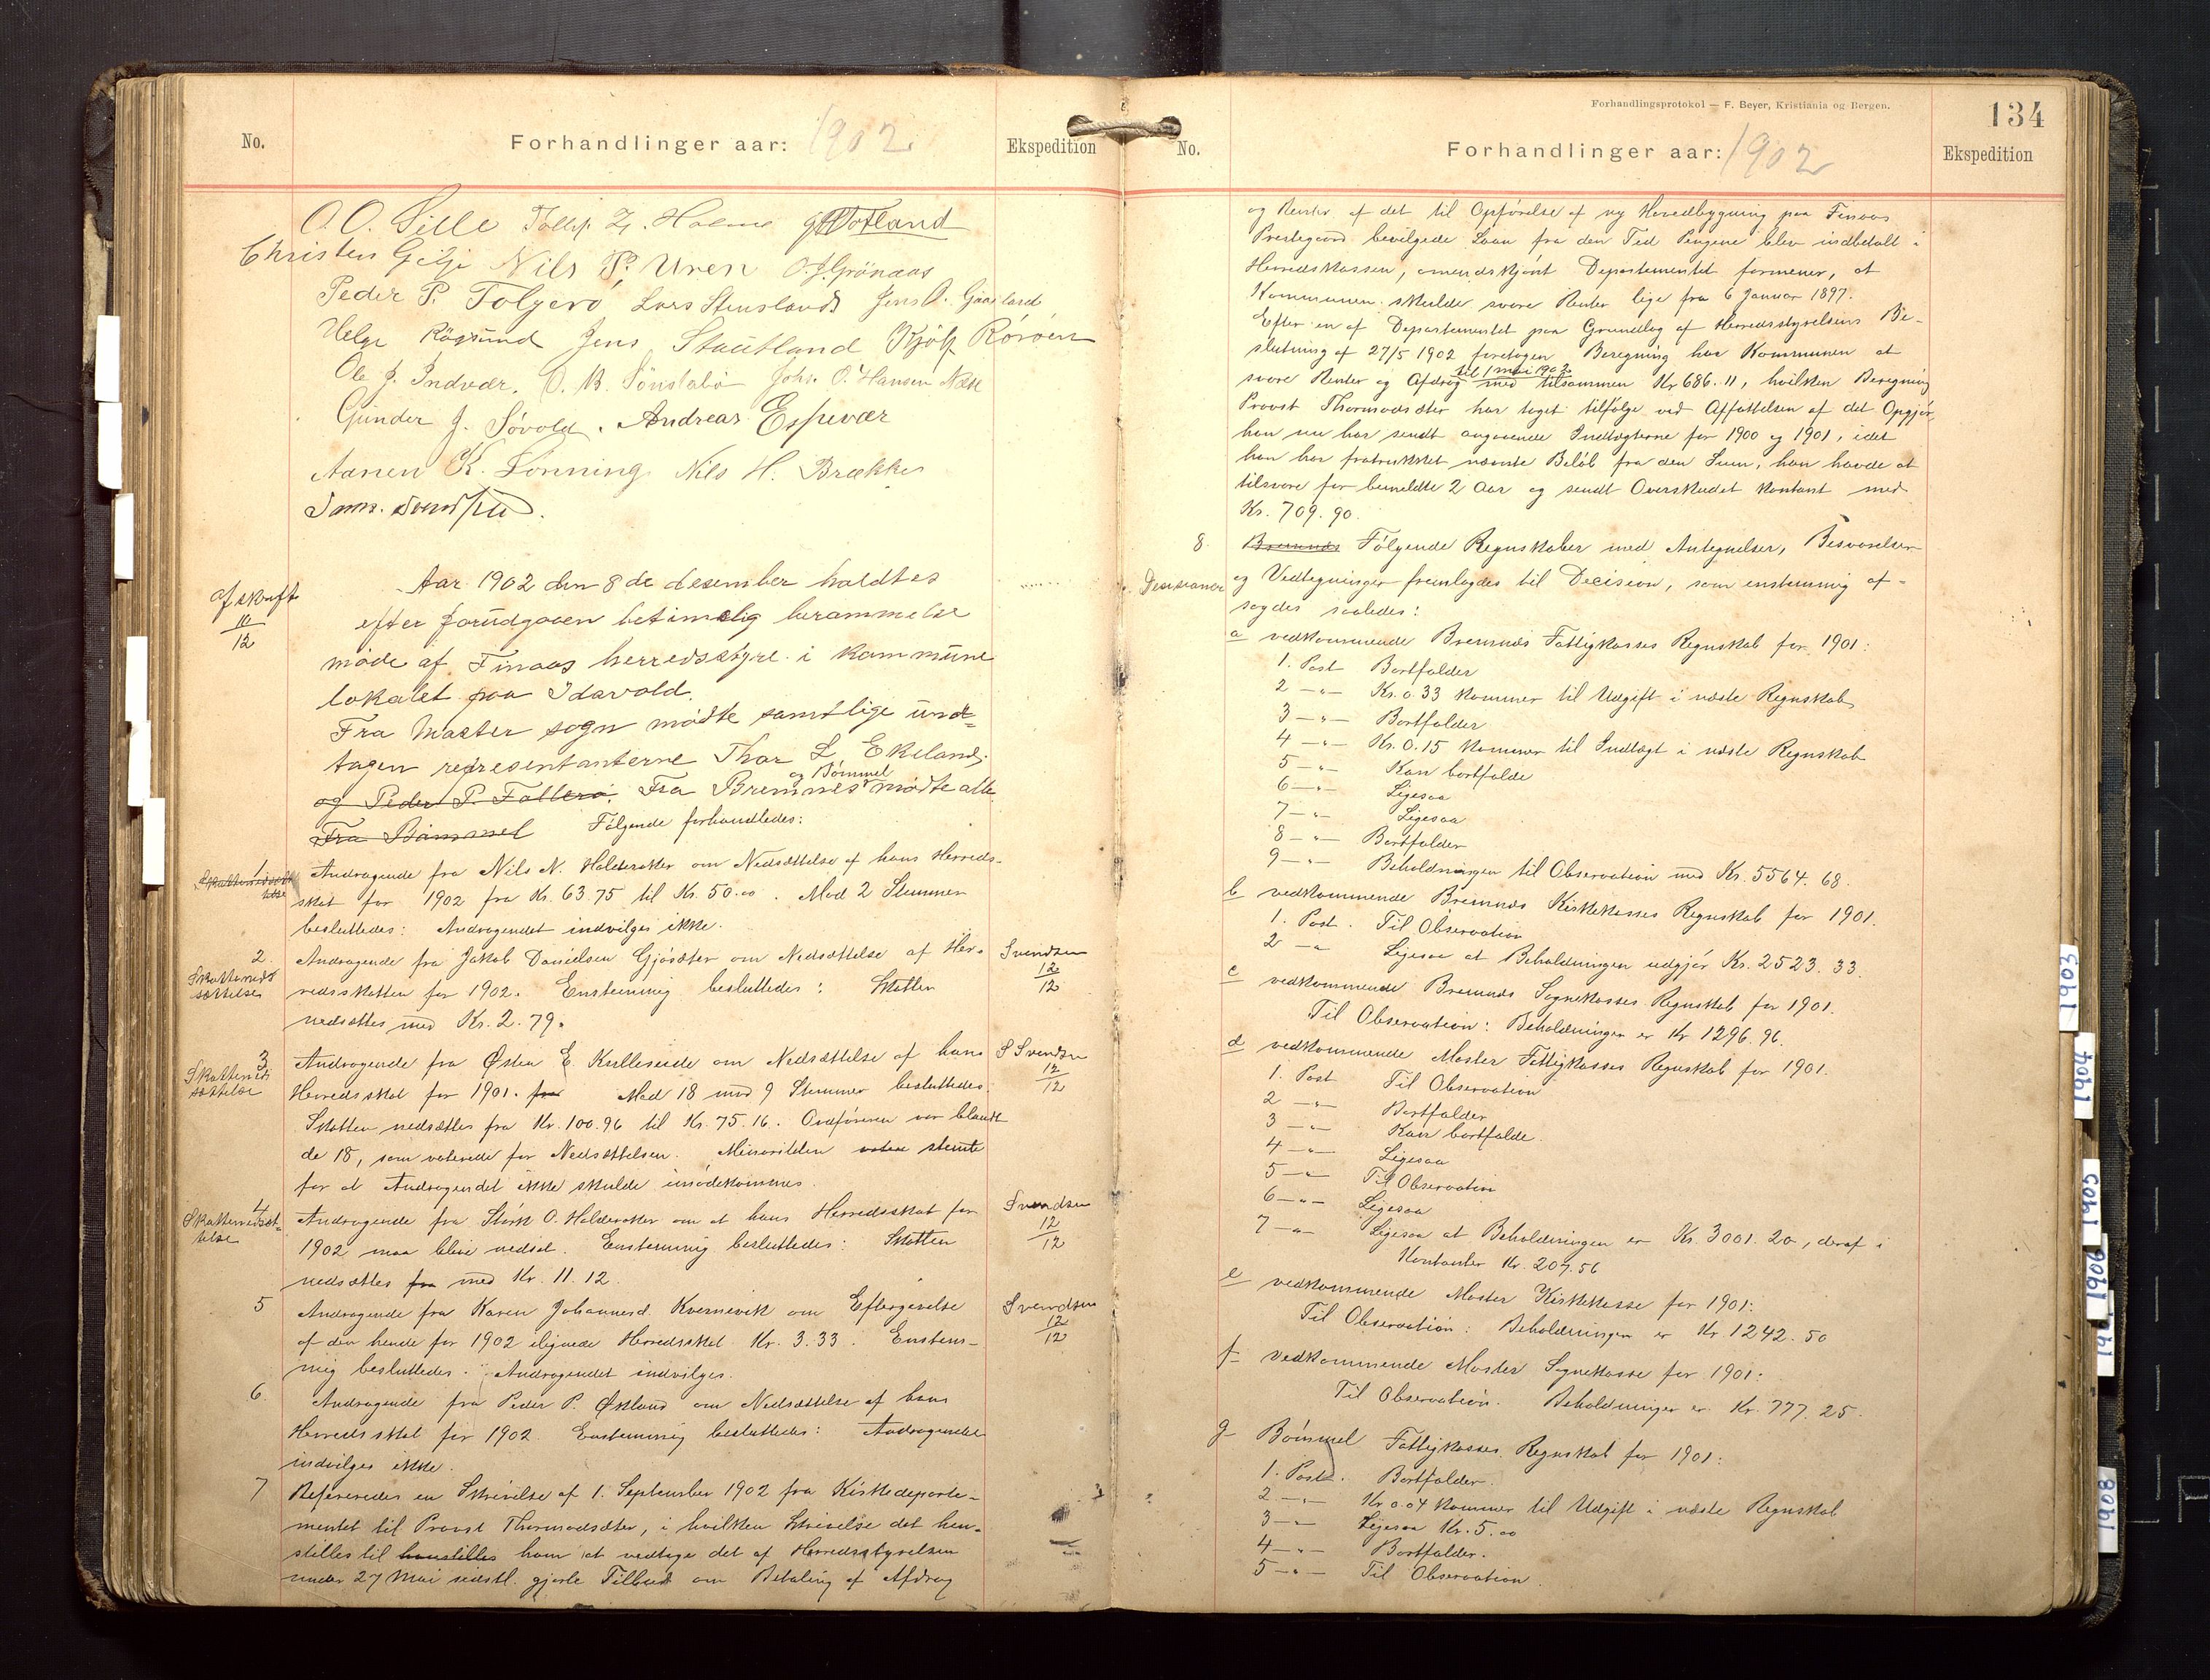 No.
Forhandlinger aar: 1902
Ekspedition
O. O. Sille Tollef Z. Holme G Totland
Christen Gilje Nils P. Uren O. J. Grönaas
Peder P. Folgerö Lars Stensland Jens O. Gaasland
Helge Rögsund Jens Stautland Kjöl Röröen
Ole J. Indvær. O. B. Sönstabö Johs. O. Hansen Næse
Gunder J. Søvold. Andreas Espevær
Aanen K. Lönning Nils H. Brække
afskrift
10/12
Aar 1902 den 8de desember holdtes
efter forudgaaen betimelig berammelse
møde af Finaas herredsstyre i kommune
lokalet paa Idavold.
Fra Moster sogn mödte samtlige und-
tagen representanterne Thor L Ekeland.
og Peder P. Follerö. Fra Bremnes og Bömmel mödte alle.
Fra Bömmel Følgende forhandledes:
1
Skattenedsæt
telse
Andragende fra Nils N. Halderaker om Nedsættelse af hans Herreds-
skat for 1902 fra Kr. 63.75 til Kr. 50.00. Mod 2 Stemmer
besluttedes: Andragendet indvilges ikke.
2.
Skatteneds
sættelse
Andragende fra Jakob Danielsen Gjösæter om Nedsættelse af Her-
redsskatten for 1902. Enstemmig besluttedes: Skatten
nedsættes med Kr. 2.79.
Svendsen
12/12
3
Skatteneds
sættelse
Andragende fra Østen E. Kulleseide om Nedsættelse af hans
Herredsskat for 1901. fra Mod 18 mod 9 Stemmer besluttedes:
Skatten nedsættes fra Kr. 100.96 til Kr. 75.16. Ordføreren var blandt
de 18, som voterede for Nedsættelsen. Minoriteten stemte
for at Andragendet ikke skulde imødekommes.
S Svendsen
12/12
4
Skattenedsæt-
telse
Andragende fra Störk O. Halderaker om at hans Herredsskat for
1902 maa blive nedsat. Enstemmig besluttedes: Skatten
nedsættes fra med Kr. 11.12.
Svendsen
12/12
5
Andragende fra Karen Johannesd. Kvernevik om Eftergivelse
af den hende for 1902 ilignede Herredsskat Kr. 3.33. Enstem-
mig besluttedes: Andragendet indvilges.
Svendsen
12/12
6.
Andragende fra Peder P. Økland om Nedsættelse af hans
Herredsskat for 1902. Enstemmig besluttedes: Andragendet
indvilges ikke.
7
Refereredes en Skrivelse af 1. September 1902 fra Kirkedeparte-
mentet til Provst Thormodsæter, i hvilken Skrivelse det hen-
stilles til henstilles ham at vedtage det af Herredsstyrelsen
under 27 Mai sidstl. gjorte Tilbud om Betaling af Afdrag
Forhandlingsprotokol — F. Beyer, Kristiania og Bergen.
134
No.
Forhandlinger aar: 1902
Ekspedition
og Renter af det til Opførelse af ny Hovedbygning paa Finaas
Prestegaard bevilgede Laan fra den Tid Pengene blev indbetalt i
Herredskassen, omendskjönt Departementet formener, at
Kommunen skulde svare Renter lige fra 6 Januar 1897.
Efter en af Departementet paa Grundlag af Herredsstyrelsens Be-
slutning af 27/5 1902 foretagen Beregning har Kommunen at
svare Renter og Afdrag til 1 mai 1902 med tilsammen Kr 686.11, hvilken Beregning
Provst Thormodsæter har taget tilfølge ved Affattelsen af det Opgjör,
han nu har sendt angaaende Indtægterne for 1900 og 1901, idet
han har fratrukket nævnte Beløb fra den Sum, han havde at
tilsvare for bemeldte 2 Aar og sendt Overskudet kontant med
Kr. 709.90.
8.
Decisioner
Bremnes Følgende Regnskaber med Antegnelser, Besvarelser
og Vedtegninger fremlagdes til Decision, som enstemmig af-
sagdes saaledes:
a vedkommende Bremnes Fattigkasses Regnskab for 1901:
1. Post Bortfalder
2 —"— Kr. 0.33 kommer til Udgift i næste Regnskab
3 —"— Bortfalder
4 —"— Kr. 0.15 kommer til Indtægt i næste Regnskab
5 —"— Kan bortfalde
6 —"— Ligesaa
7 —"— Ligesaa
8 —"— Bortfalder
9 —"— Beholdningen til Observation med Kr. 5564.68.
b vedkommende Bremnes Kirkekasses Regnskab for 1901.
1. Post. Til Observation
2 —"— Ligesaa at Beholdningen udgjør Kr. 2523.33.
c vedkommende Bremnes Sognekasses Regnskab for 1901.
Til Observation: Beholdningen er Kr 1296.96.
d vedkommende Moster Fattigkasses Regnskab for 1901.
1. Post Til Observation
2 —"— Bortfalder
3 —"— Kan bortfalde.
4 —"— Ligesaa
5 —"— Til Observation
6 —"— Ligesaa
7 —"— Ligesaa at Beholdningen er Kr. 3001.20, deraf i
Kontanter Kr. 207.56
e vedkommende Moster Kirkekasse for 1901:
Til Observation: Beholdningen er Kr. 1242.50
f vedkommende Moster Sognekasse for 1901:
Til Observation. Beholdningen er Kr. 777.25.
g Bömmel Fattigkasses Regnskab for 1901:
1. Post. Bortfalder.
2 —"— Kr 0.04 kommer til Udgift i næste Regnskab
3 —"— Ligesaa Kr. 5.00
4 —"— Bortfalder.
5 —"— Til Observation.
1903
1904
1905
1906
1908